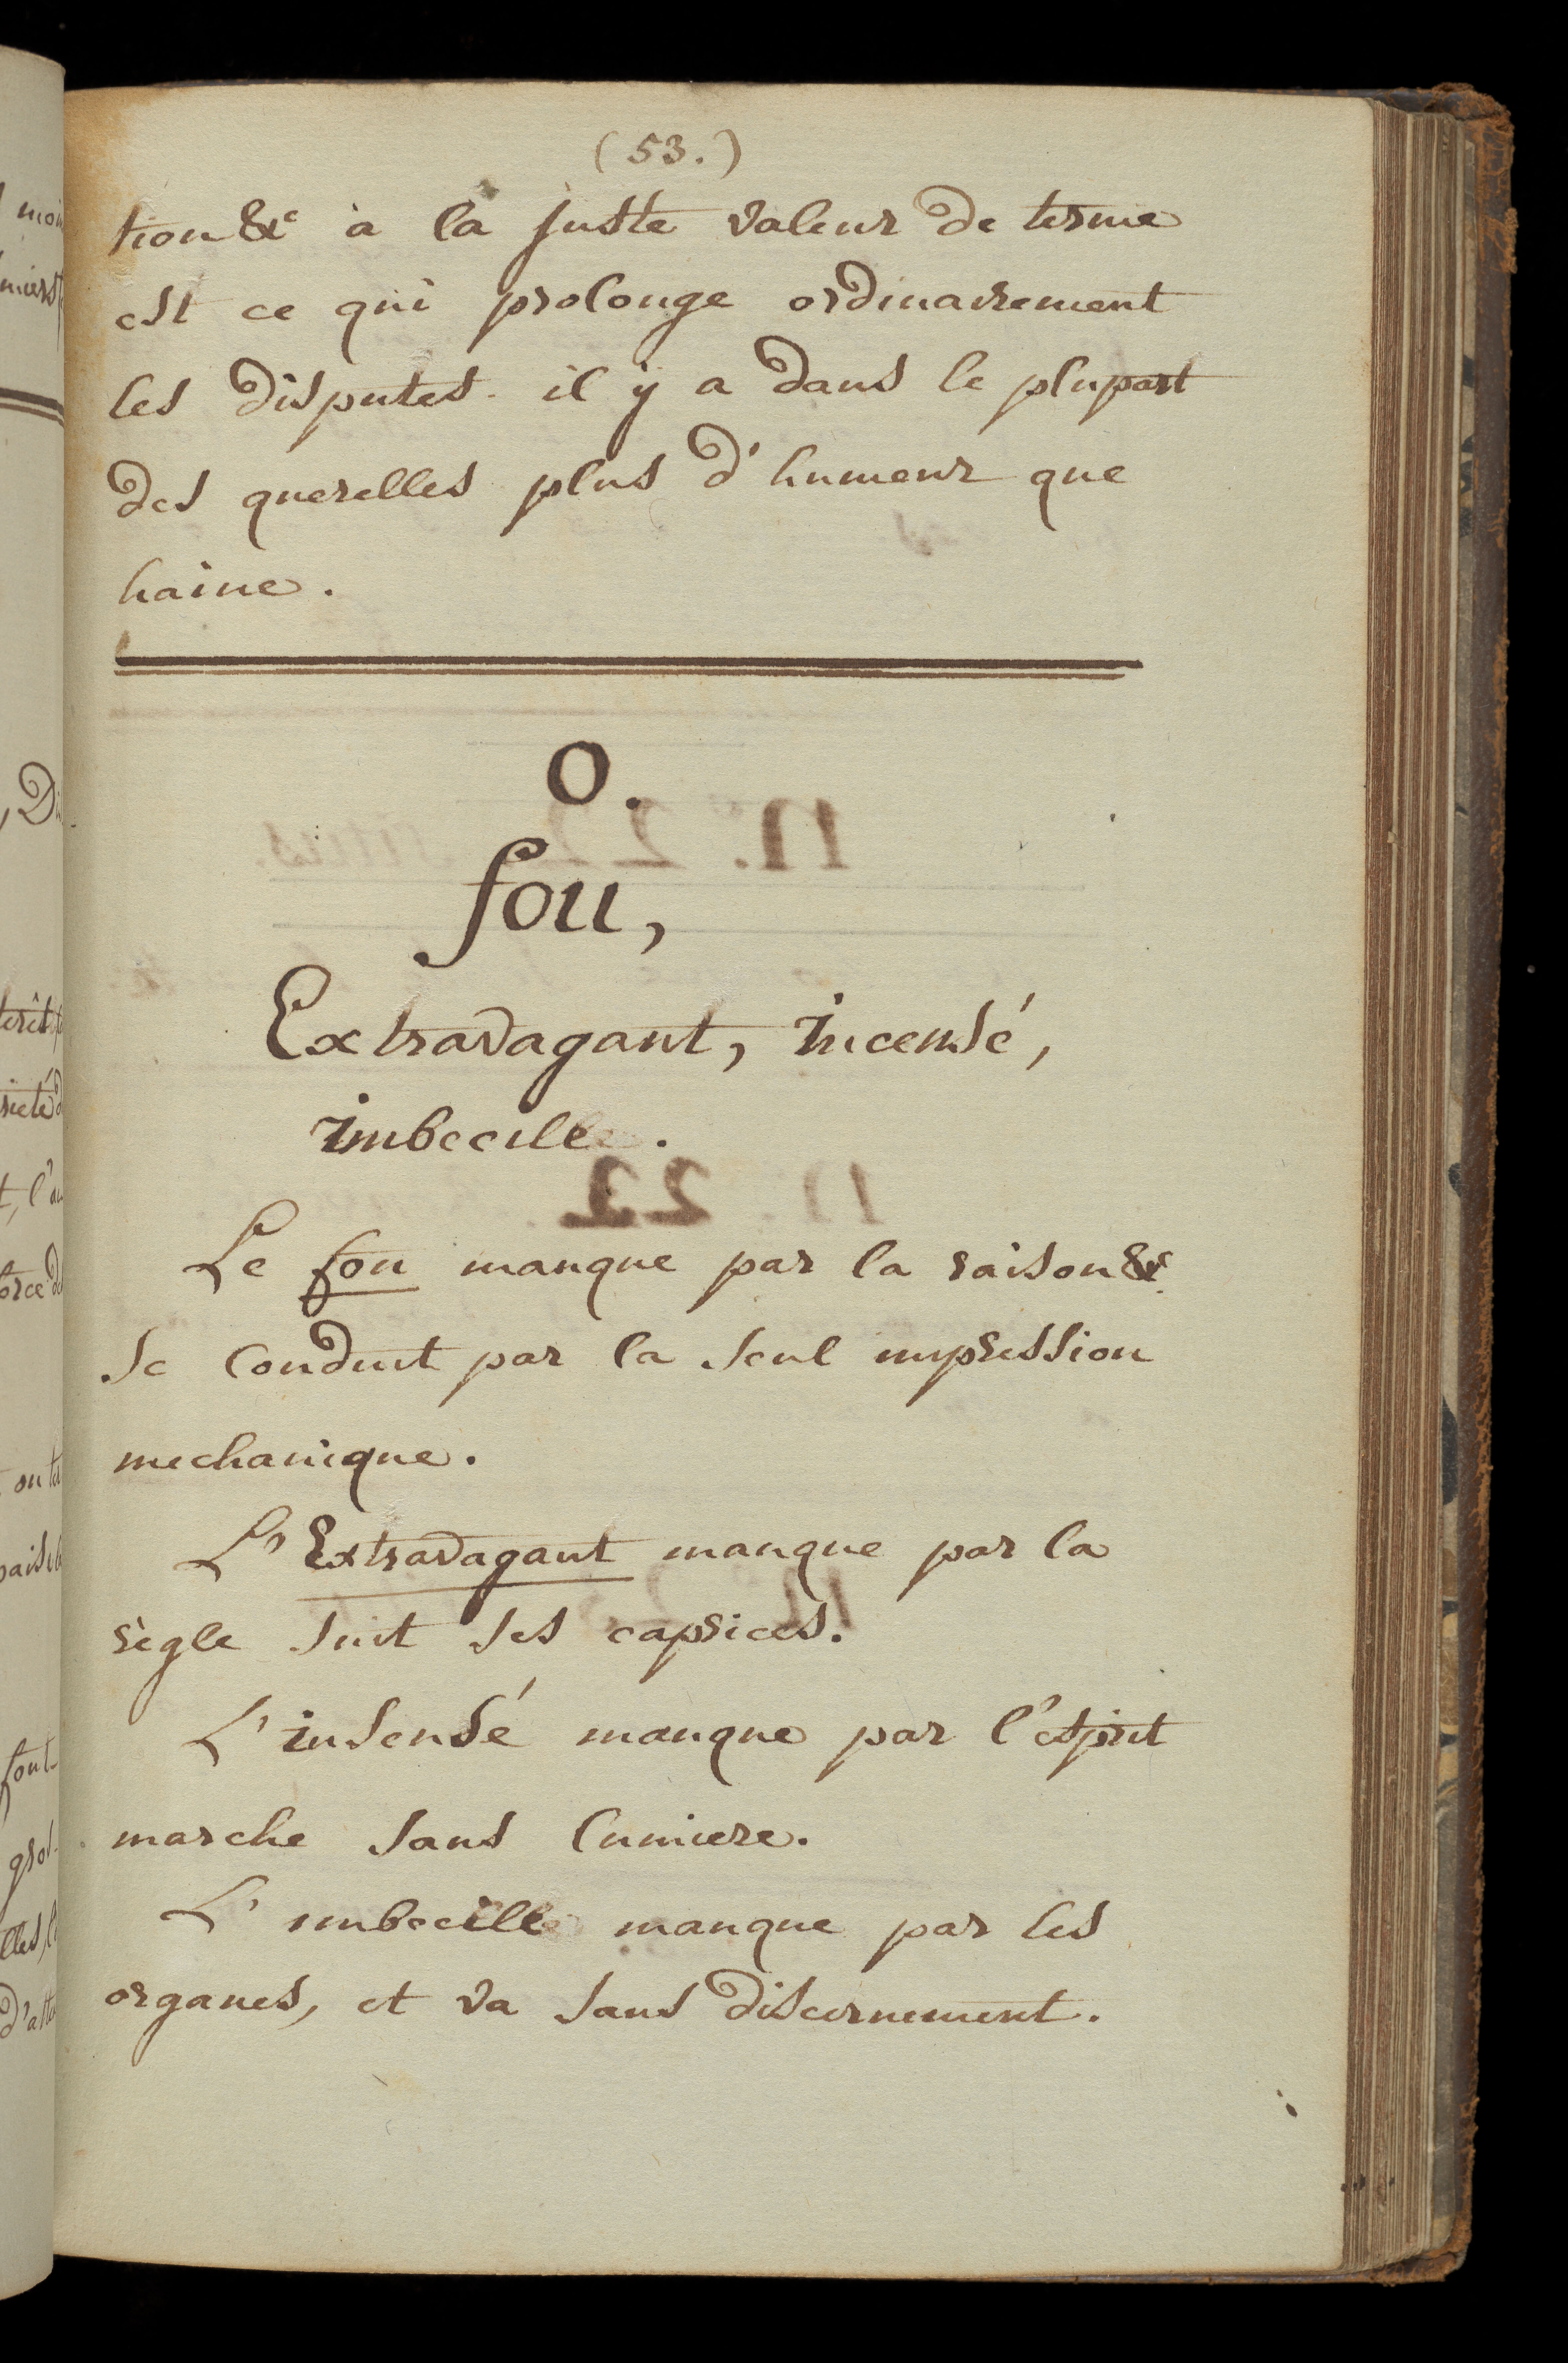 (53.)
tion &c à la juste valeur de terme
est ce qui prolonge ordinairement
les disputes. il ÿ a dans le plupart
des querelles plus d'humeur que
haine.
O.
fou,
Extravagant, incensé,
imbecille.
Le fou manque par la raison &
se conduit par la seul impression
mechanique.
L'Extravagant manque par la
règle suit ses caprices.
L'insensé manque par l'esprit
marche sans lumiere.
L'imbecille manque par les
organes, et va sans discernement.